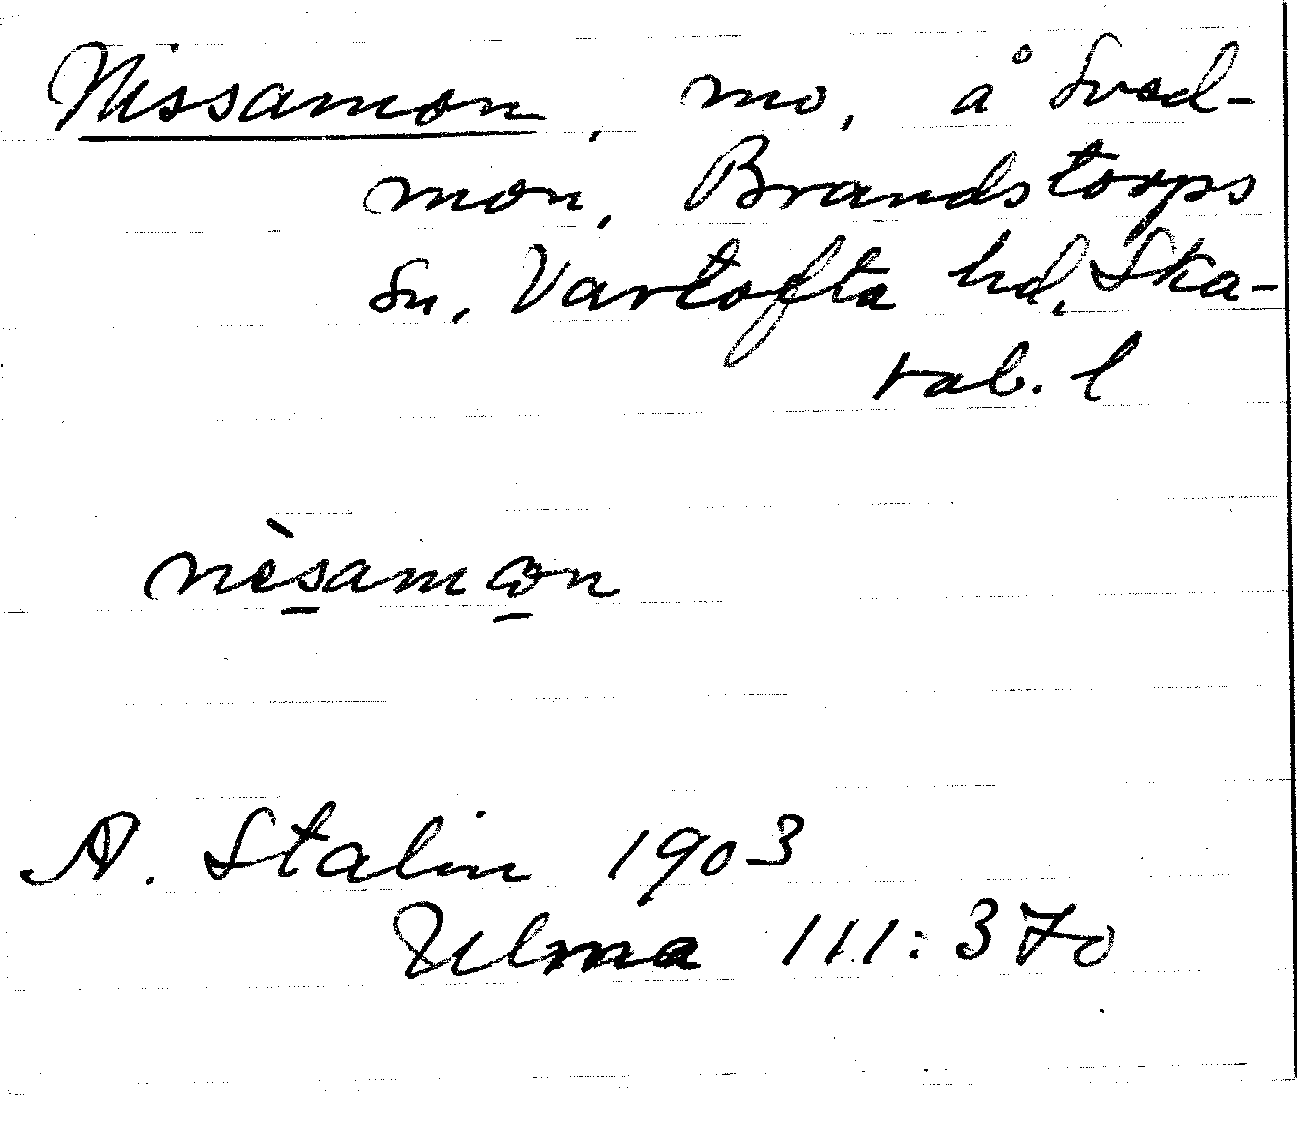 Nissamon, mo, å Sved-
mon, Brandstorps
sn, Vartofta hd, Ska-
rab. l
nèsamωn
A. Stalin 1903
Ulma 111:370